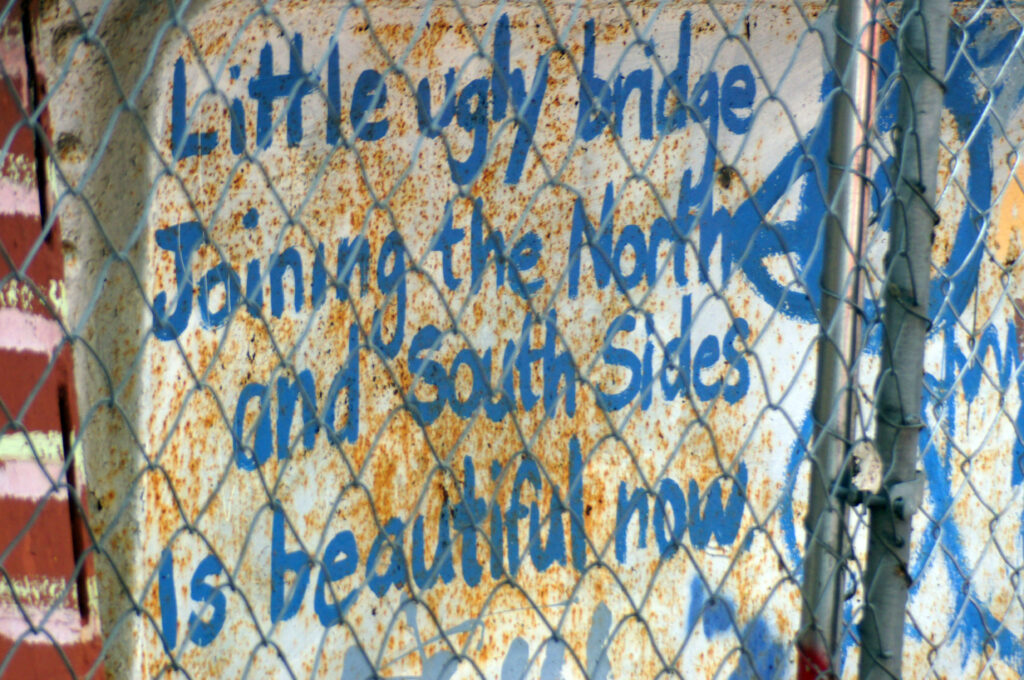 Little ugly bridge
Joining the North
and South Sides
Is beautiful now.